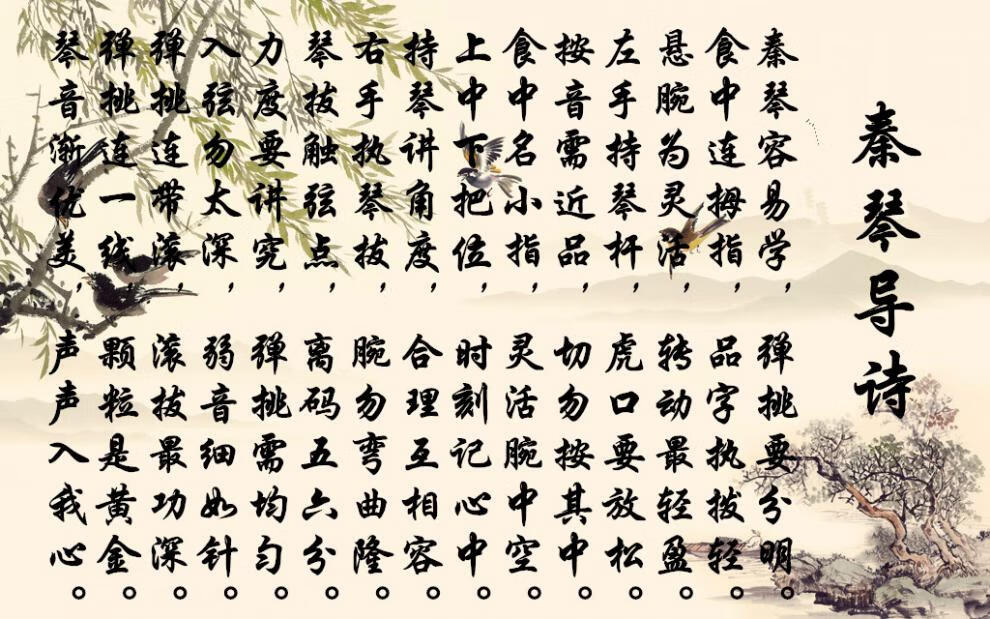 秦琴导诗
秦琴容易学，弹挑要分明。
食中连拇指，品字执拨轻。
悬腕为灵活，转动最轻盈。
左手持琴杆，虎口要放松。
按音需近品，切勿按其中。
食中名小指，灵活腕中空。
上中下把位，时刻记心中。
持琴讲角度，合理互相容。
右手执琴拔，腕勿弯曲隆。
琴拔触弦点，离码五六分。
力度要讲究，弹挑需均匀。
入弦勿太深，弱音细如针。
弹挑连带滚，滚拔最功深。
弹挑连一线，颗粒是黄金。
琴音渐优美，声声入我心。